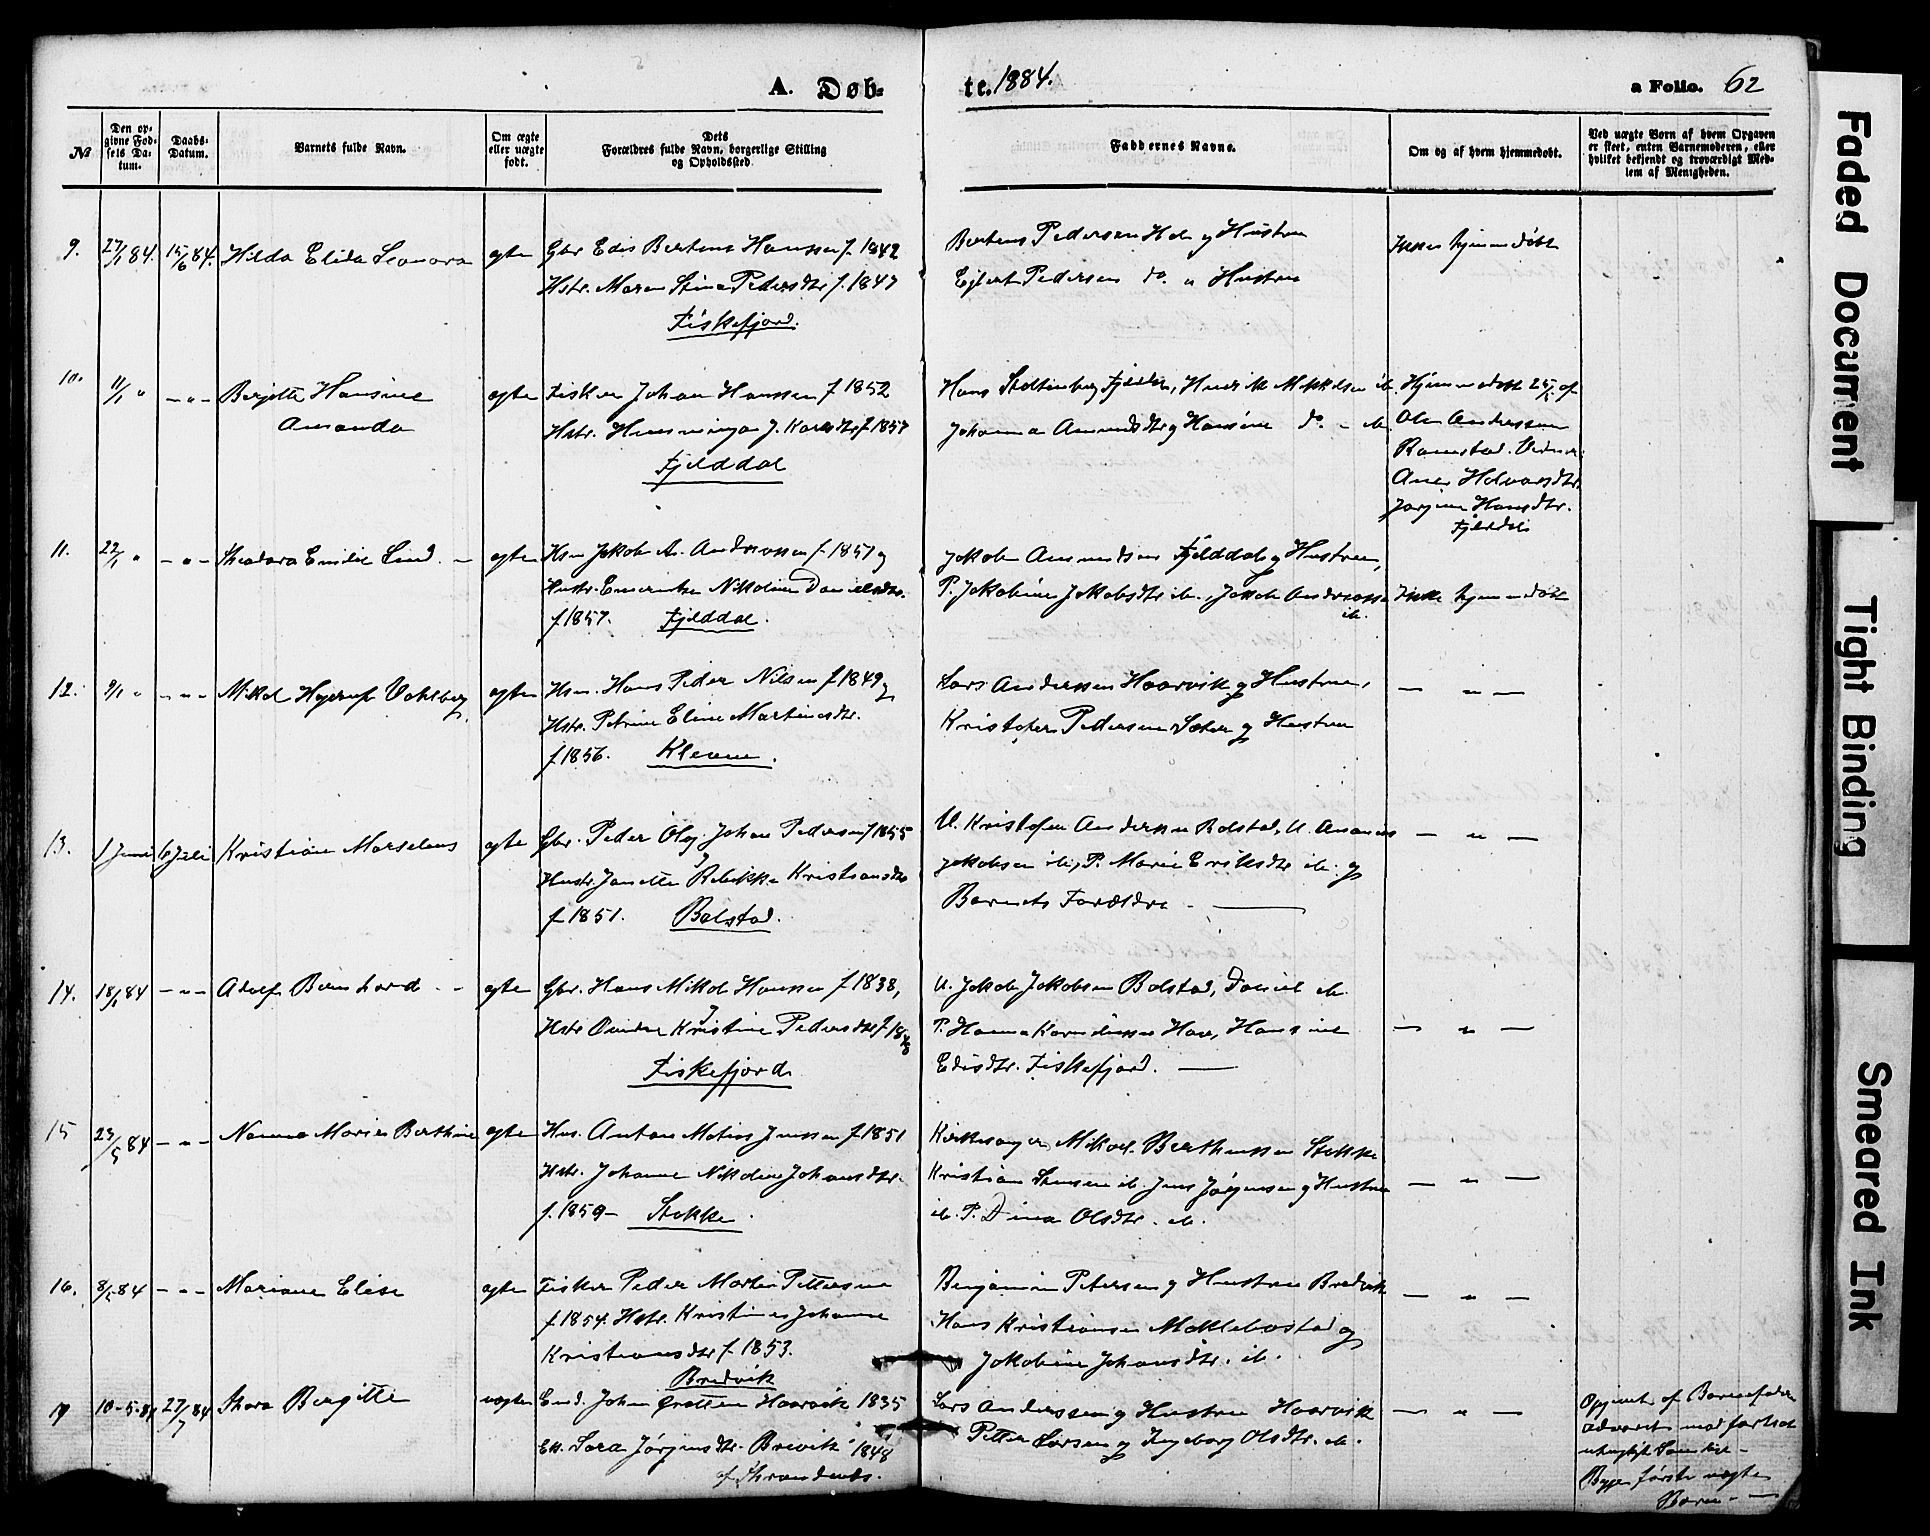 A. Døb-
te. 1884.
a Folio. 62
№
Den op-
givne Fød-
sels Da-
tum.
Daabs-
Datum.
Barnets fulde Navn.
Om ægte
eller uægte
født.
Dets
Forældres fulde Navn, borgerlige Stilling
og Opholdssted.
Faddernes Navne.
Om og af hvem hjemmedøbt.
Ved uægte Børn af hvem Opgaven
er skeet, enten Barnemoderen, eller
hvilket bekjendt og troværdigt Med-
lem af Menigheden.
9. 27/1 84. 15/6 84. Hilda Elida Leonora ægte Gbr. Edis Hanssen f. 1842
Hstr. Maren Stina Pedersdtr f. 1847
Fiskefjord.
Pedersen og Hustru
Ejlert Pedersen do. " Hustru
Ikke hjemmedøbt
10. 11/1 " — " — Berjitte Hansine
Amanda
ægte Fisker Johan Hanssen f 1852
Hstr. J. f 1857
Fjelddal
Hans Stoltenberg Fjelddal, Hendrik Mikkelsen ib.
Johanna Amundsdtr og Hansine do - ib
Hjemmedøbt af
Ole Andreassen
Ramstad.
Hansdtr.
Fjelddal
11. 22/1 " — " — Theodora Emilie Lind — ægte Hsm Jakob A. Andreassen f 1857 og
Hustr. Nikoline Danielsdtr.
f 1857. Fjelddal.
Jakob Amundsen Fjelddal og Hustru,
P. Jakobine Jakobsdtr ib., Jakob Andreassen
ib.
Ikke hjemmedøbt
12. 9/1 " — " — Mikal Hagerup Vahlberg. ægte Hsm. Hans Peder Nilsen f 1849 og
Hstr. Petrine Eline Martinesdtr.
f 1856. Klevene.
Lars Anderssen Haarvik og Hustru,
Kristofer Pedersen og Hustru
— " —
13. 1 Juni 6 Juli Kristian Marselius ægte Gbr. Peder Olaj Johan Pedersen f 1855
og
Hustr. Janette Rebekka Kristiansdtr
f 1851. Bolstad.
U. Kristofer Anderssen Bolstad, U. Ananias
Jakobsen ib, P. Marie Eriksdtr ib. og
Barnets Forældre —
— " —
14. 18/1 84 — " — Adolf Bernhard - - ægte Gbr. Hans Mikal Hanssen f 1838,
og
Hstr Kristine Pedersdtr f
Fiskefjord
U. Jakob Jakobsen Bolstad, Daniel ib.
P. Hanna Hansine
Edisdtr. Fiskefjord. —
— " —
15 23/5 84 — " — Nanna Marie Berthine ægte Hsm. Anton Matias Jenssen f 1851
Hstr. Johanne Nikoline Johansdtr.
f. 1859 - Stokke.
Kirkesanger Mikael Berthensen Stokke
Kristian ib. Jens Jørgensen og Hustru
ib. P. Dina Olsdtr. ib.
— " —
16. 8/5 84 — " — Mariane Elise ægte Fisker Peder Martin Pettersen
f 1854. Hstr. Kristine Johanne
Kristiansdtr f 1853.
Bredvik
Benjamin Petersen og Hustru Bredvik
Hans Kristiansen Meklebostad og
Jakobine Johansdtr. ib.
— " —
17 10-5-84 27/7 84 Thora Bergitte uægte Enk. Johan Haarvik 1835
Ek. Sara Jørgensdtr. Brevik 1848
af
Lars Anderssen og Hustru Haarvik
Petter Larsen og Ingeborg Olsdtr. ib.
— " —
Opgivet af Barnefader
advaret mod fortsat
utugtigt Samliv. -
Begges første uægte
Barn. —
Faded Document
Tight Binding
Smeared Ink